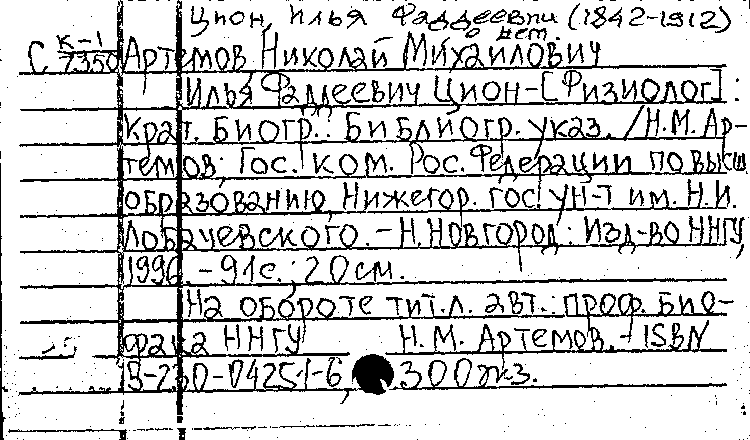 Цион, Илья Фаддеевич (1842-1912)
о нем.
С К-1/7350 Артемов, Николай Михайлович
Илья Фаддеевич Цион-[Физиолог]:
Крат. биогр.: Библиогр. указ. /Н.М. Ар-
темов; Гос. ком. Рос. Федерации по высш
образованию, Нижегор. гос. ун-т им. Н.И.
Лобачевского.-Н.Новгород: Изд-во ННГУ,
1996.-91с.; 20см.
На обороте тит.л. авт.: проф. Био-
фака ННГУ Н.М. Артемов.-ISBN
5-230-04251-6, 300экз.